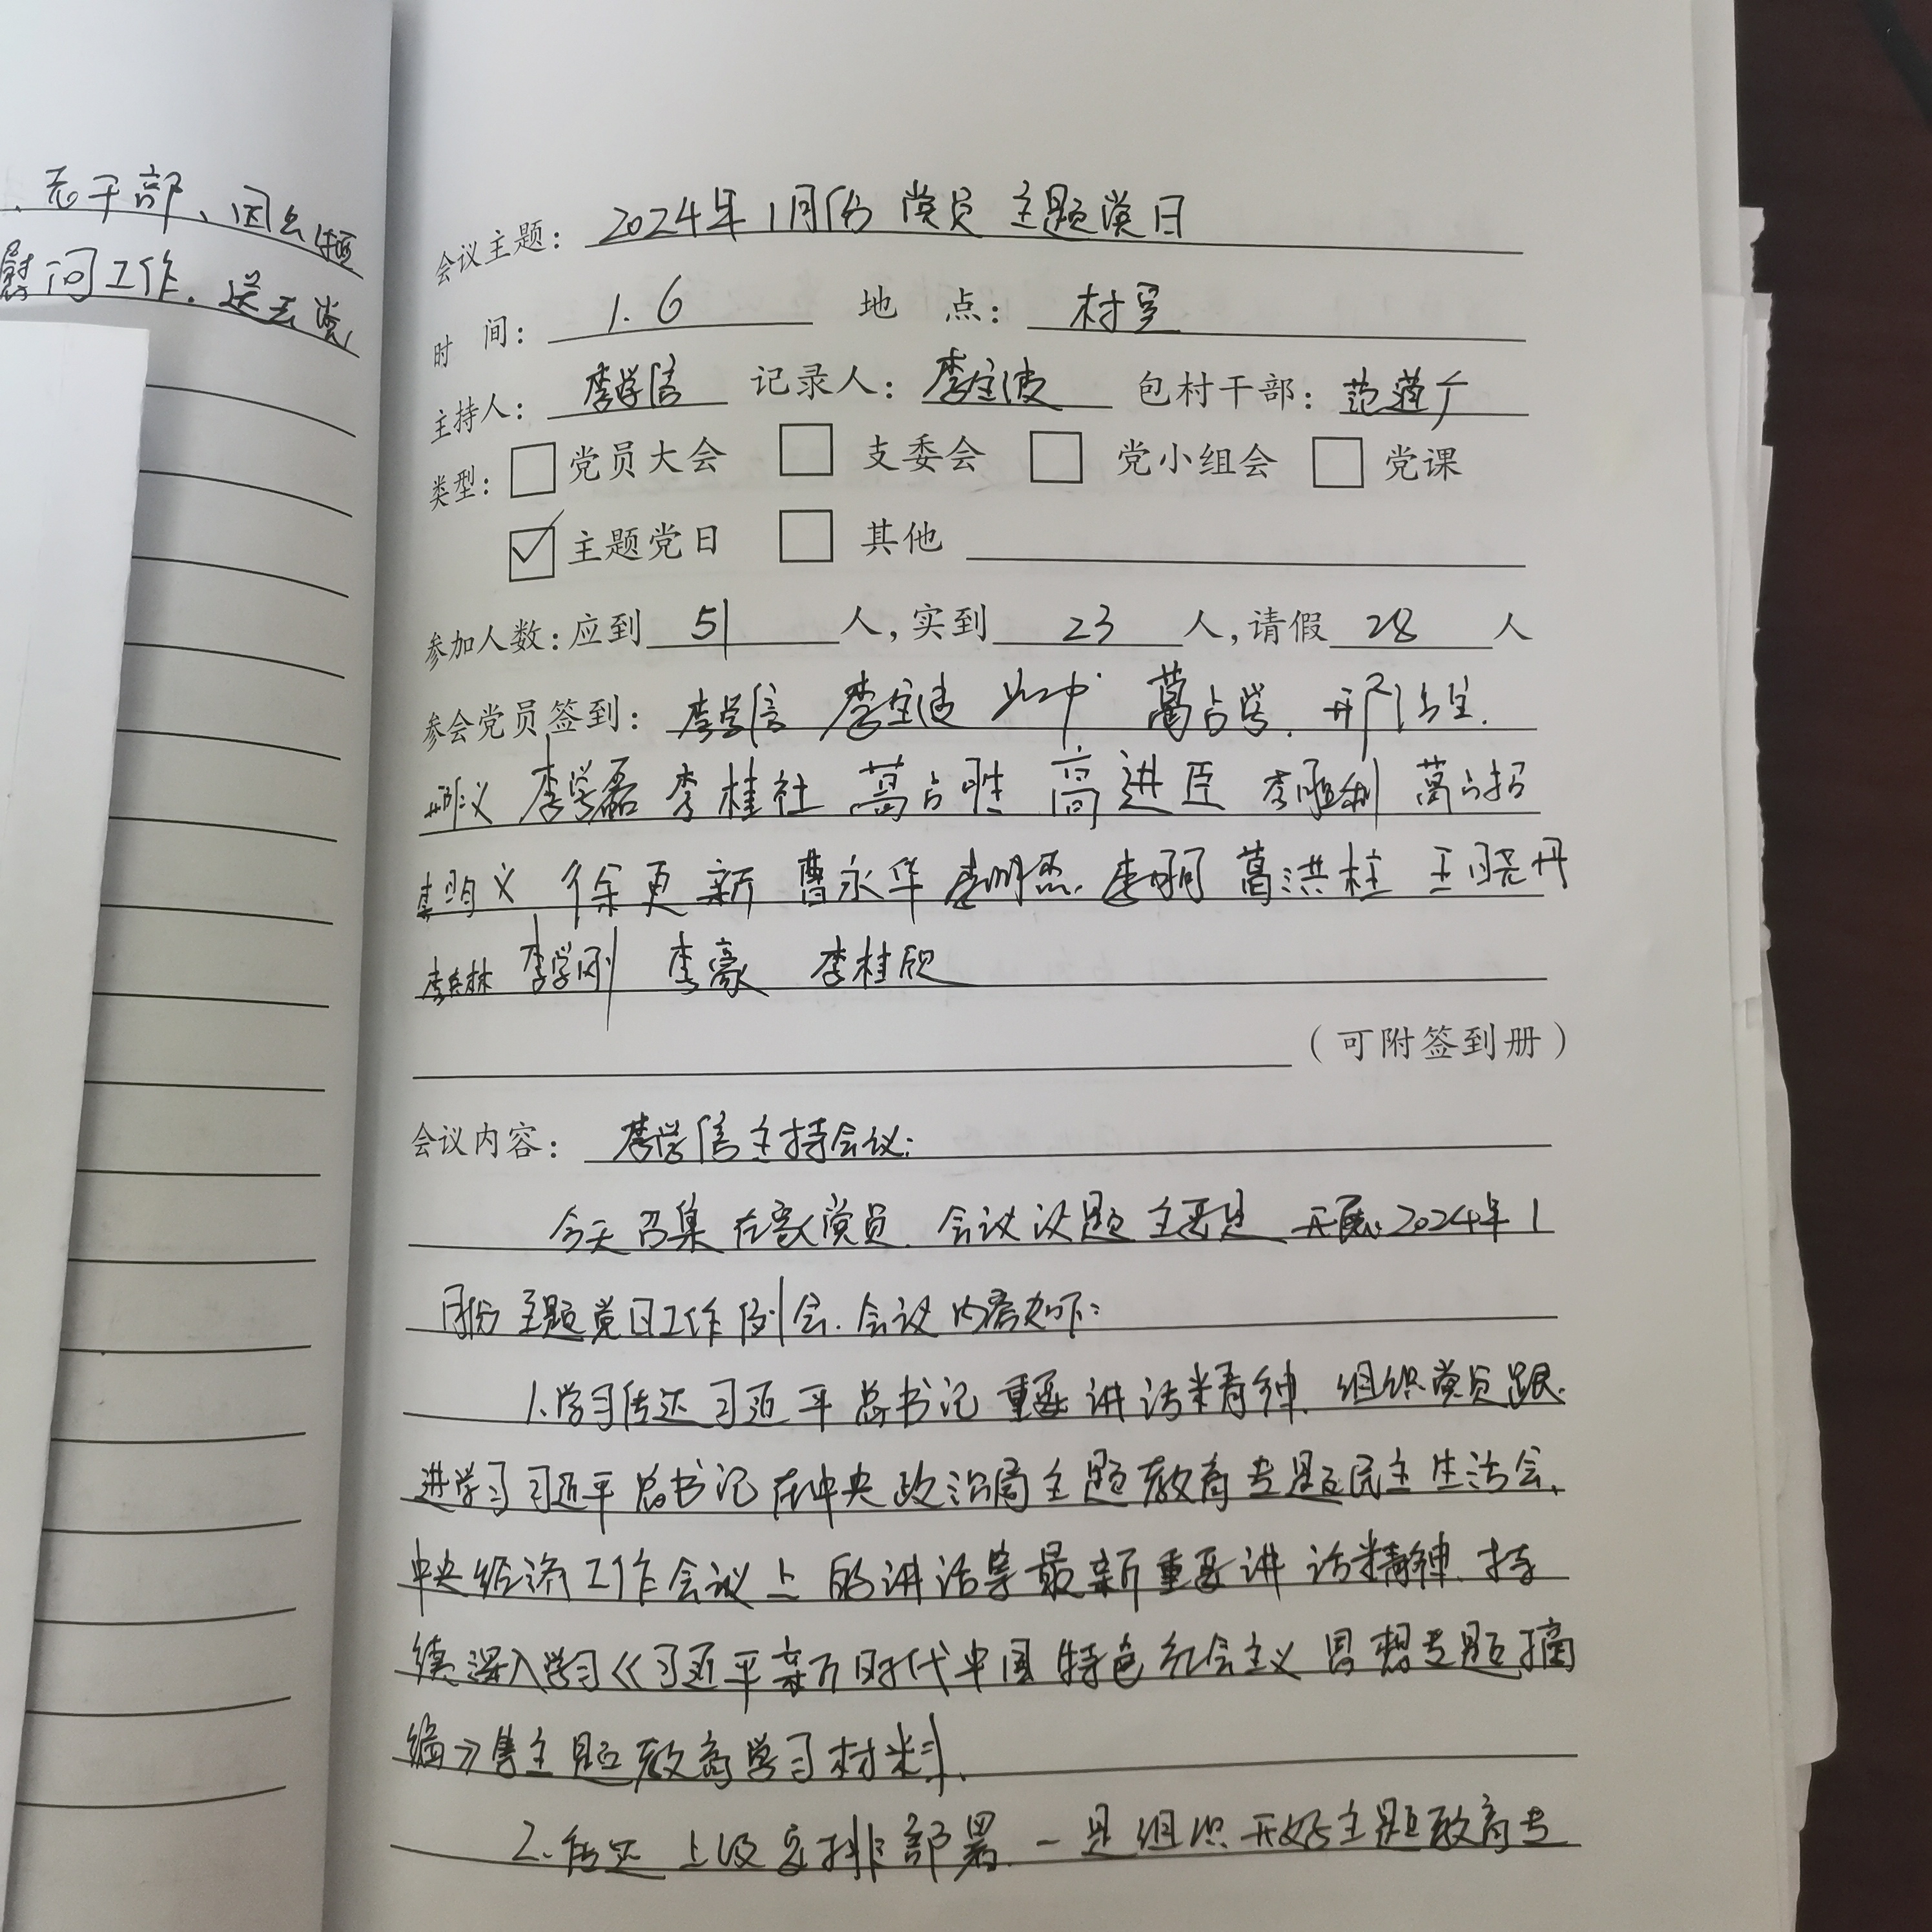 、老干部、因公牺
慰问工作.送去党
会议主题：2024年1月份党员主题党日
时 间：1.6 地 点：村室
主持人：李学信 记录人：李宝波 包村干部：范
类型：□党员大会 □支委会 □党小组会 □党课
☑主题党日 □其他
参加人数：应到51人，实到23人，请假28人
参会党员签到：李学信 李宝波 葛占学.
李学磊 李桂社 葛占胜 高进臣 李胜利 葛占招
李明义 徐更新 曹永华 李明杰. 李珂 葛洪柱 王晓丹
李学刚 李豪 李桂欣
（可附签到册）
会议内容：李学信主持会议：
今天召集在家党员.会议议题主要是开展2024年1
月份主题党日工作例会.会议内容如下：
1.学习传达习近平总书记重要讲话精神.组织党员跟
进学习习近平总书记在中央政治局主题教育专题民主生活会、
中央经济工作会议上的讲话等最新重要讲话精神.持
续深入学习《习近平新时代中国特色社会主义思想专题摘
编》等主题教育学习材料.
2.传达上级安排部署.一是组织开好主题教育专